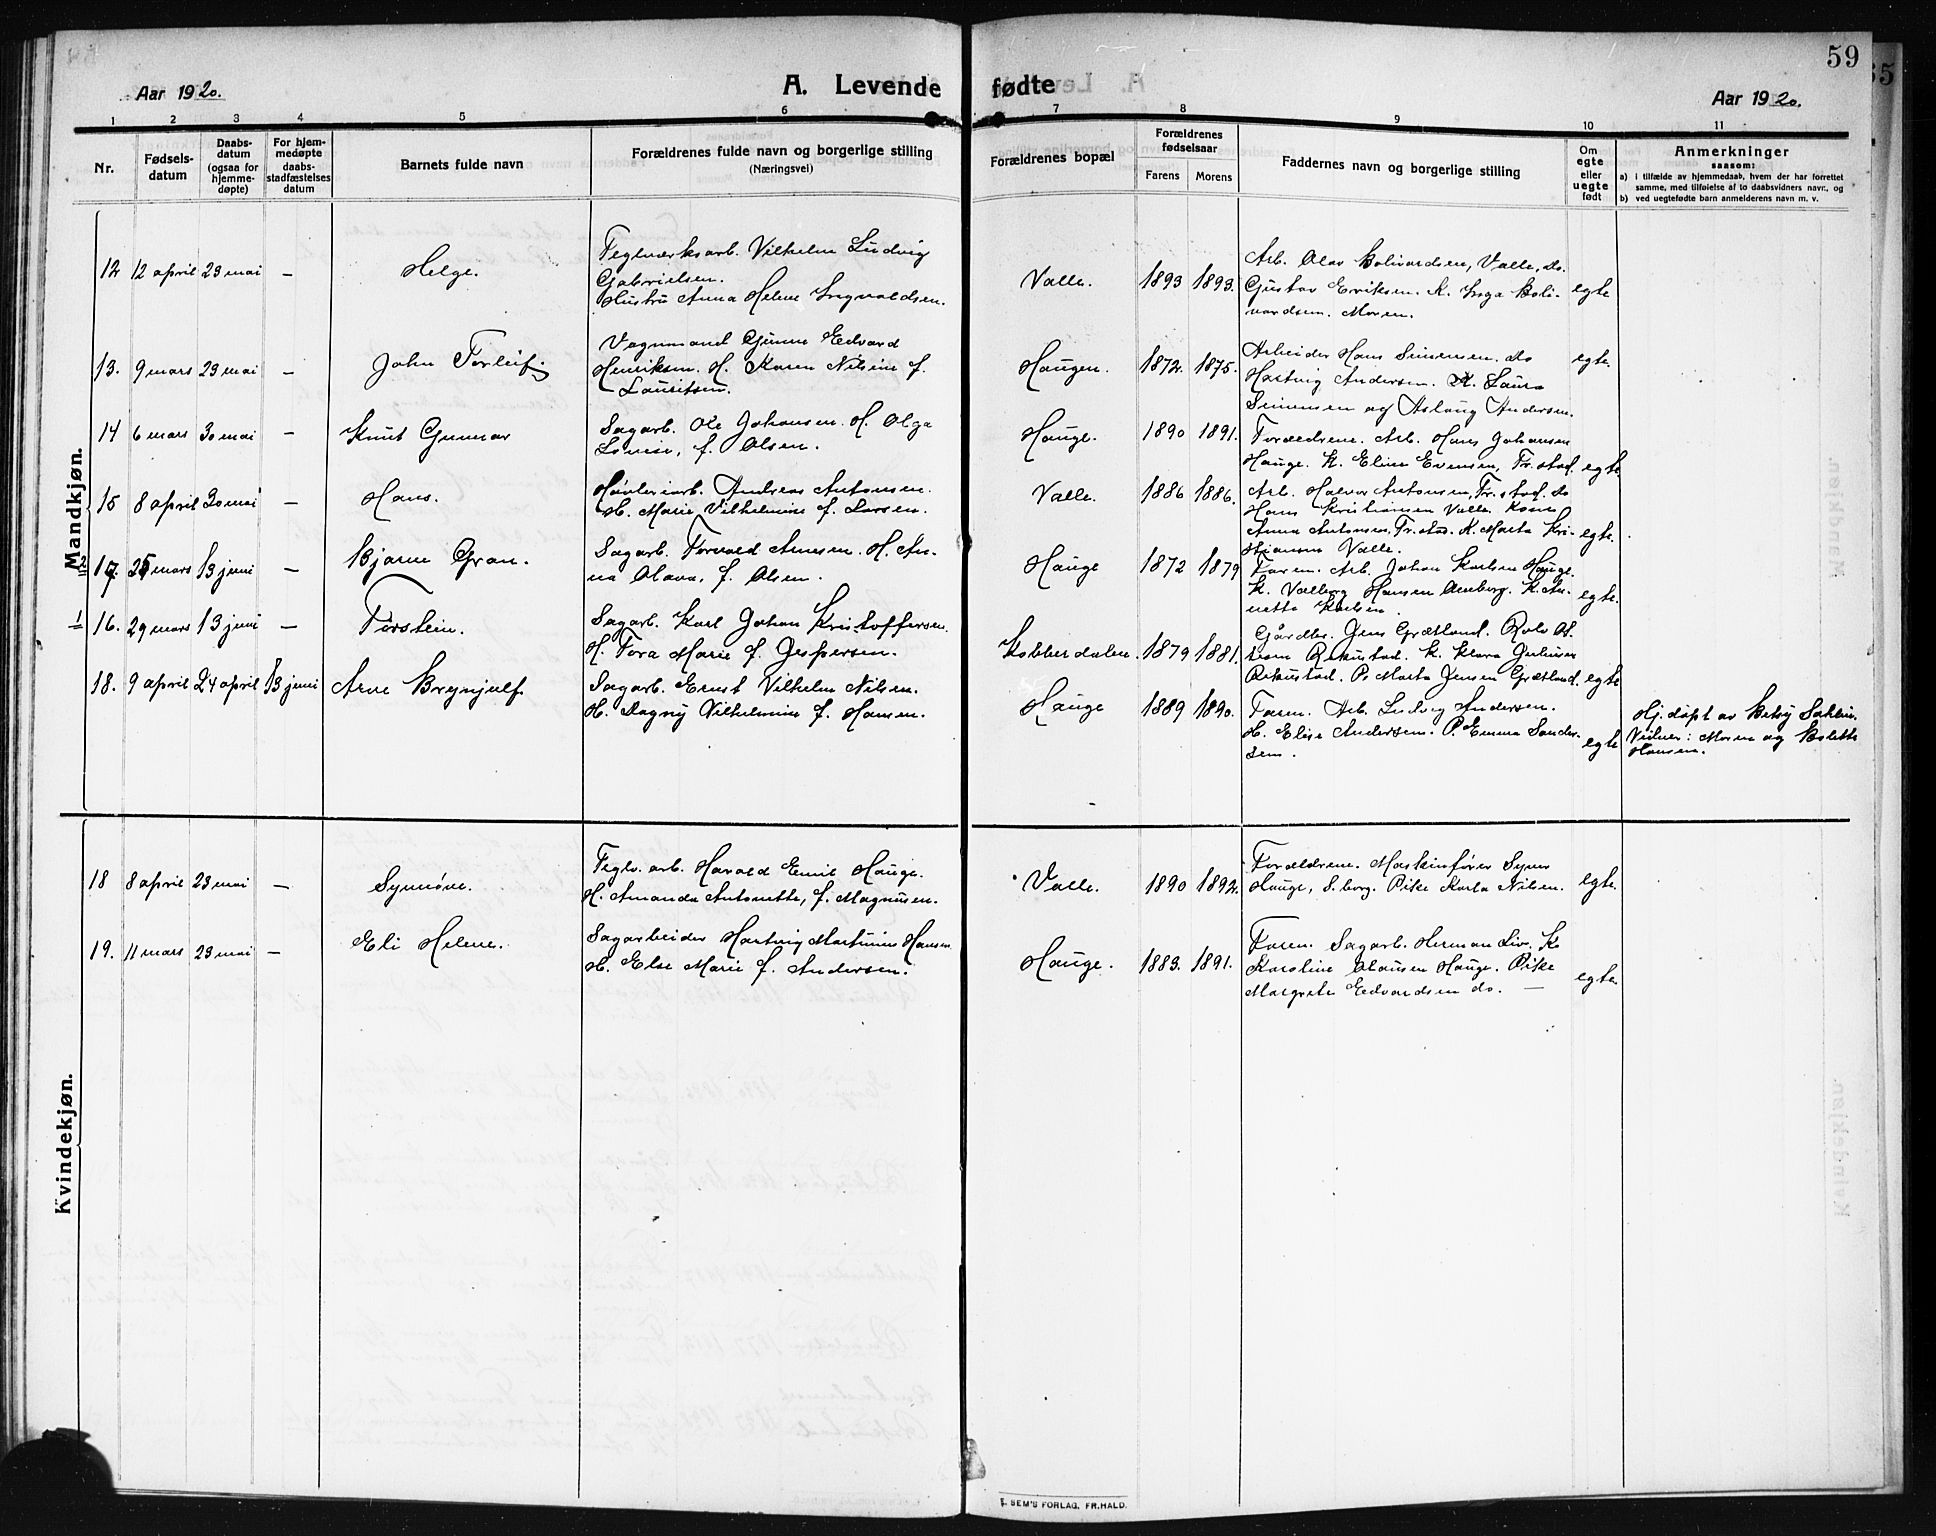 59
Aar 1920.
A. Levende fødte
Aar 1920.
1 2 3 4 5 6 7 8 9 10 11
Nr.
Fødsels-
datum
Daabs-
datum
(ogsaa for
hjemme-
døpte)
For hjem-
medøpte
daabs-
stadfæstelses
datum
Barnets fulde navn
Forældrenes fulde navn og borgerlige stilling
(Næringsvei)
Forældrenes bopæl
Forældrenes
fødselsaar
Farens Morens
Faddernes navn og borgerlige stilling
Om
egte
eller
uegte
født
Anmerkninger
saasom:
a) i tilfælde av hjemmedaab, hvem der har forrettet
samme, med tilføielse af to daabsvidners navn, og
b) ved uegtefødte barn anmelderens navn m. v.
Mandkjøn.
12 12 april 23 mai – Helge.
Teglverksarb. Vilhelm Ludvig
Gabrielsen.
Hustru Anna Helene Ingvaldsen.
Valle. 1893 1893.
Arb. Olav Bolivardsen, Valle, do.
Gustav Eriksen. K. Inga Boli-
vardsen. Moren.
egte
13. 9 mars 23 mai – John Torleif
Vognmand Gunne Edvard
Henriksen. H. Karen Nilsine f.
Lauritsen.
Haugen. 1872. 1875.
Arbeider Hans Simensen. do
Hartvig Andersen. K. Laura
Simensen og Aslaug Andersen.
egte.
14 6 mars 30 mai – Knut Gunnar
Sagarb. Ole Johansen. H. Olga
Lovise, f. Olsen.
Hauge. 1890 1891.
Forældrene. Arb. Hans Johansen
Hauge. K. Eline Evensen, Fr.stad.
egte
15 8 april 30 mai – Hans.
Høvleriarb. Andreas Antonsen.
H. Marie Vilhelmine f. Larsen.
Valle. 1886 1886.
Arb. Halvor Antonsen, Fr.stad. do
Hans Kristiansen Valle. Kone
Anna Antonsen, Fr.stad. K. Marta Kri-
stiansen Valle.
egte.
2 17. 25 mars 13 juni – Bjarne Gran.
Sagarb. Torvald Arnesen. H. An-
na Olava, f. Olsen.
Hauge 1872 1879
Faren. Arb. Johan Karlsen Hauge.
K. Valborg Hansen K. An-
netta Karlsen.
egte.
1 16. 29 mars 13 juni – Torstein.
Sagarb. Karl Johan Kristoffersen.
H. Tora Marie f. Jespersen.
Kobberdalen. 1879 1881.
Gårdbr. Jens Grætland. Rolv
Rekustad. K. Klara Juliusen
Rekustad. P. Marta Jensen Grætland.
egte
18. 9 april 24 april 13 juni Arne Brynjulf
Sagarb. Ernst Vilhelm Nilsen.
H. Dagny Vilhelmine f. Hansen.
Hauge 1889 1890.
Faren. Arb. Ludvig Andersen.
H. Elise Andersen. P. Emma Sander-
sen.
egte
Hj. døpt av Betsy
Vidner: Moren og Bolette
Hansen.
Kvindekjøn.
18 8 april 23 mai – Synnøve.
Teglv. arb. Harald Emil Hauge.
H. Amanda Antonette, f. Magnusen.
Valle. 1890 1892.
Forældrene. Maskinfører Syver
Hauge, S.borg. Pike Karla Nilsen.
egte
19. 11 mars 23 mai – Eli Helene.
Sagarbeider Hartvig Martinius Hansen
H. Else Marie f. Andersen.
Hauge. 1883. 1891.
Faren. Sagarb. Herman Liv. K
Karoline Olausen Hauge. Pike
Margrete Edvardsen do. —
egte.
E. SEM'S FORLAG, FR.HALD.